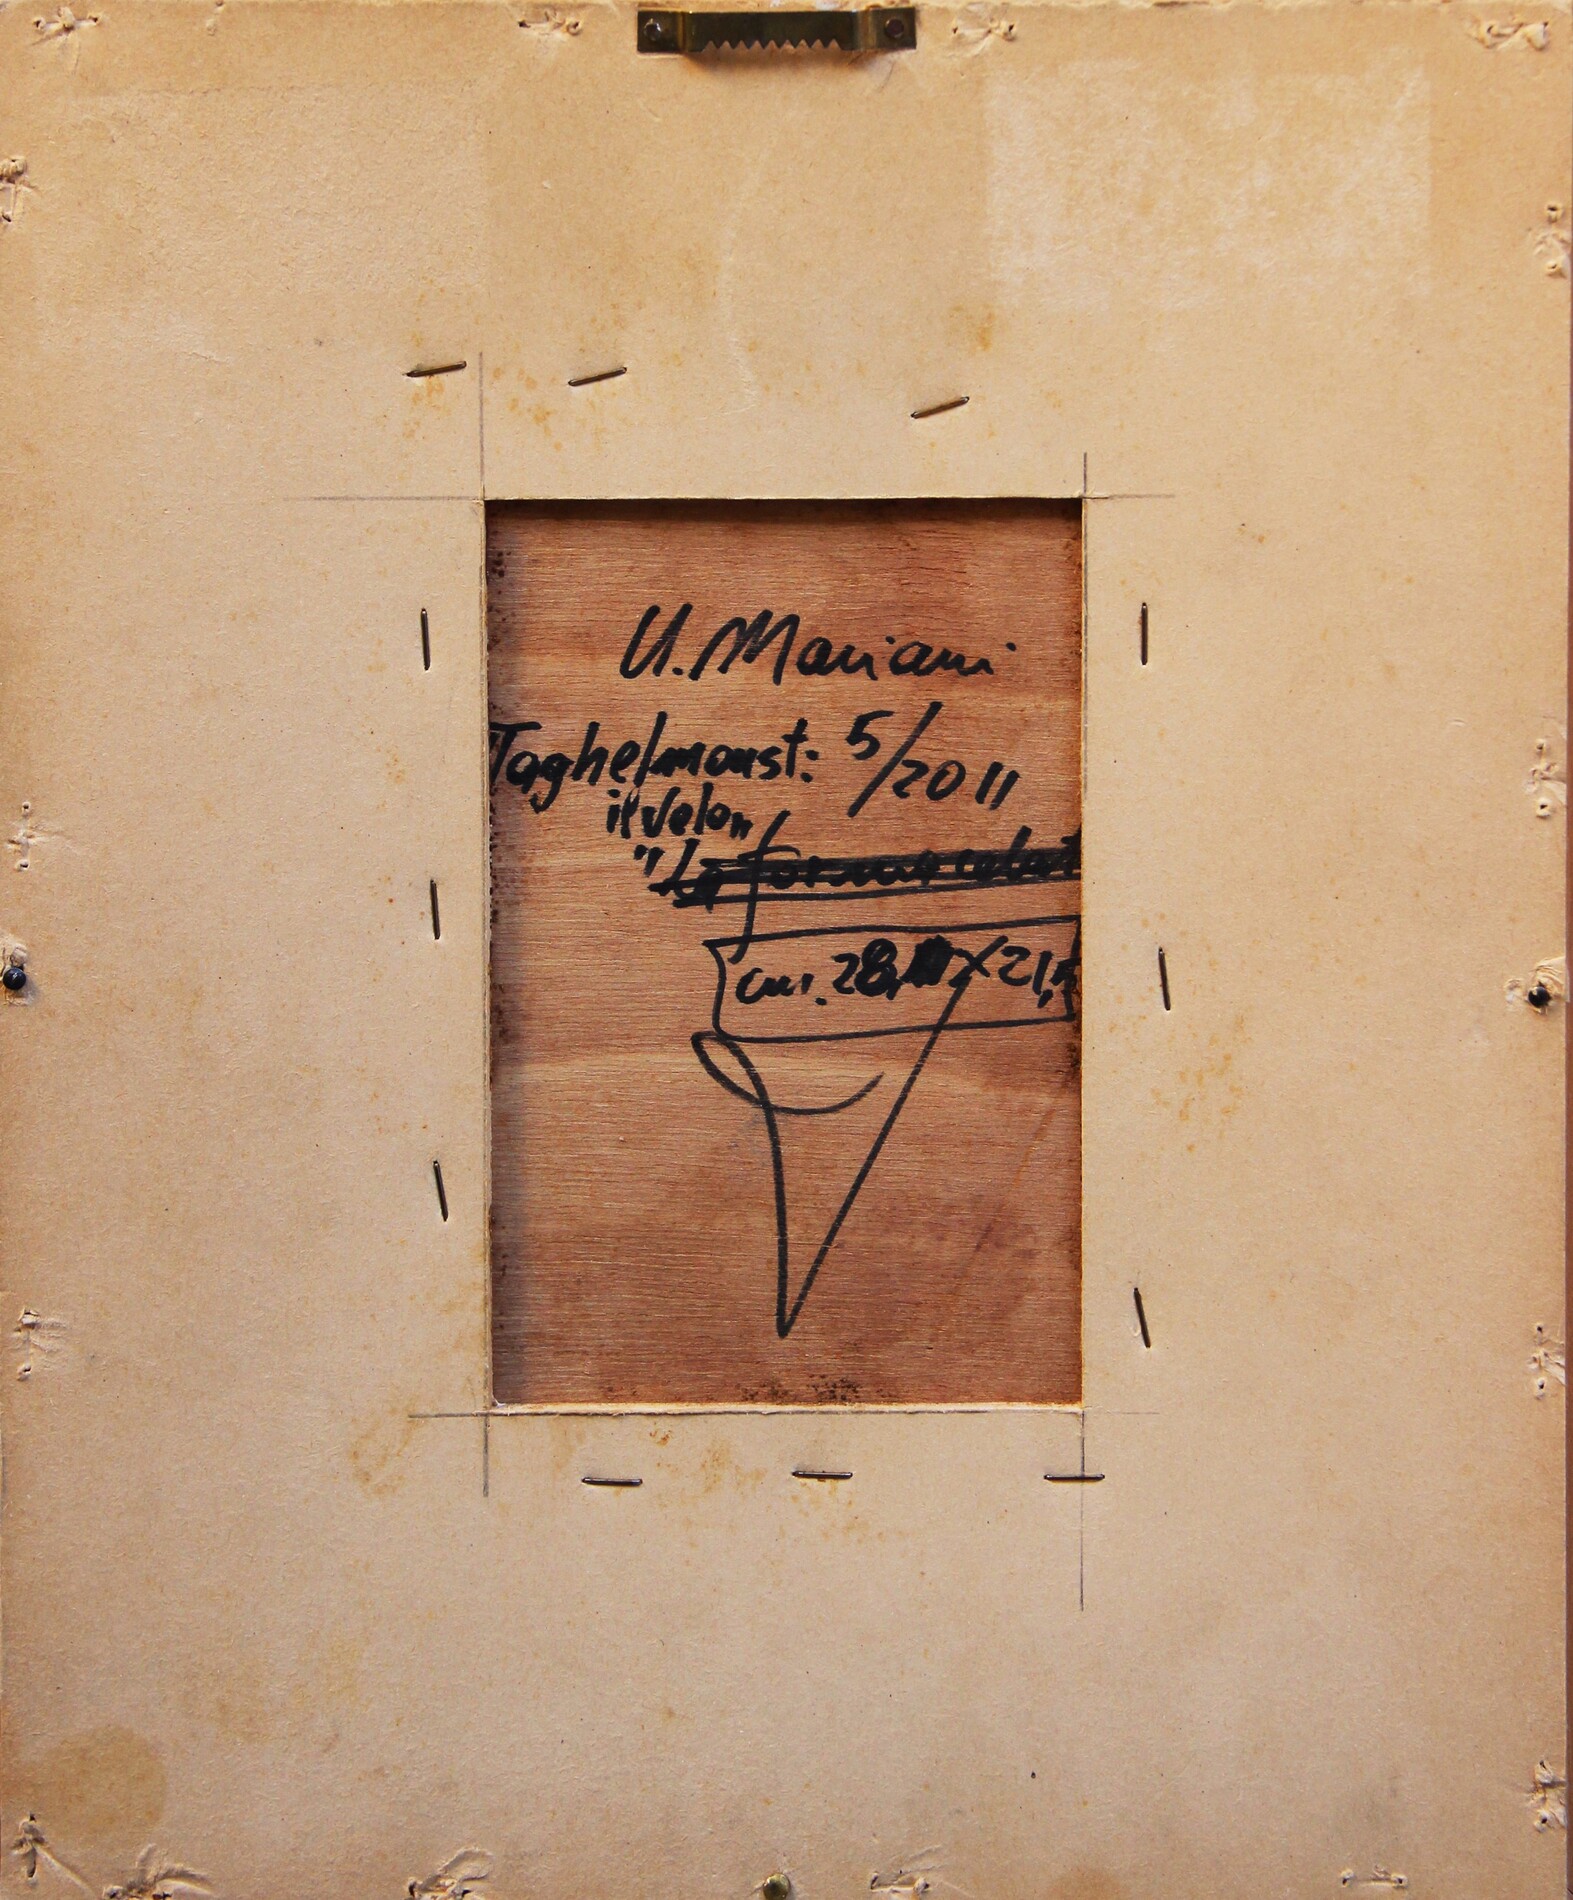 U. Mariani
"Taghelmoust: 5/2011
il Velo"
"La forma celat
cm. 28, x 21,5